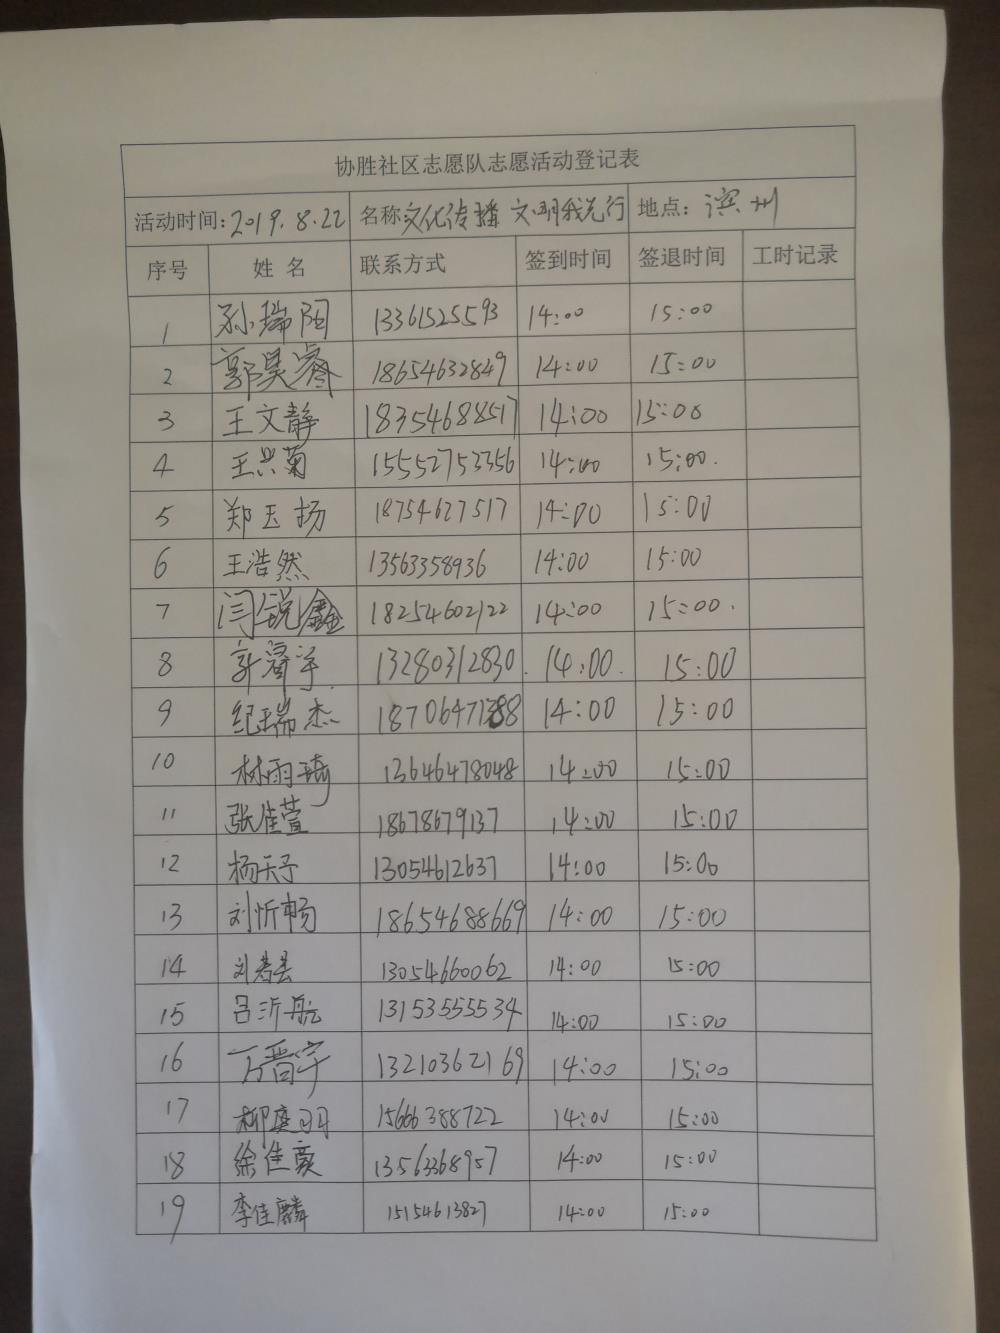 协胜社区志愿队志愿活动登记表
活动时间: 2019.8.22 名称 文化传播 文明我先行 地点: 滨州
序号 姓名 联系方式 签到时间 签退时间 工时记录
1 孙瑞阳 13361525593 14:00 15:00
2 郭昊睿 18654632849 14:00 15:00
3 王文静 18354688517 14:00 15:00
4 王兴菊 15552753356 14:00 15:00.
5 郑玉扬 18754627517 14:00 15:00
6 王浩然 13563358936 14:00 15:00
7 闫锐鑫 18254602122 14:00 15:00.
8 13280312830. 14:00. 15:00
9 纪瑞杰 18706471388 14:00 15:00
10 林雨琦 13646478048 14:00 15:00
11 张佳萱 18678679137 14:00 15:00
12 杨天予 13054612637 14:00 15:00
13 刘忻畅 18654688669 14:00 15:00
14 刘若芸 13054660062 14:00 15:00
15 吕沂航 13153555534 14:00 15:00
16 万晋宇 13210362169 14:00 15:00
17 柳庭羽 15666388722 14:00 15:00
18 徐佳豪 13563368957 14:00 15:00
19 李佳麟 15154613827 14:00 15:00